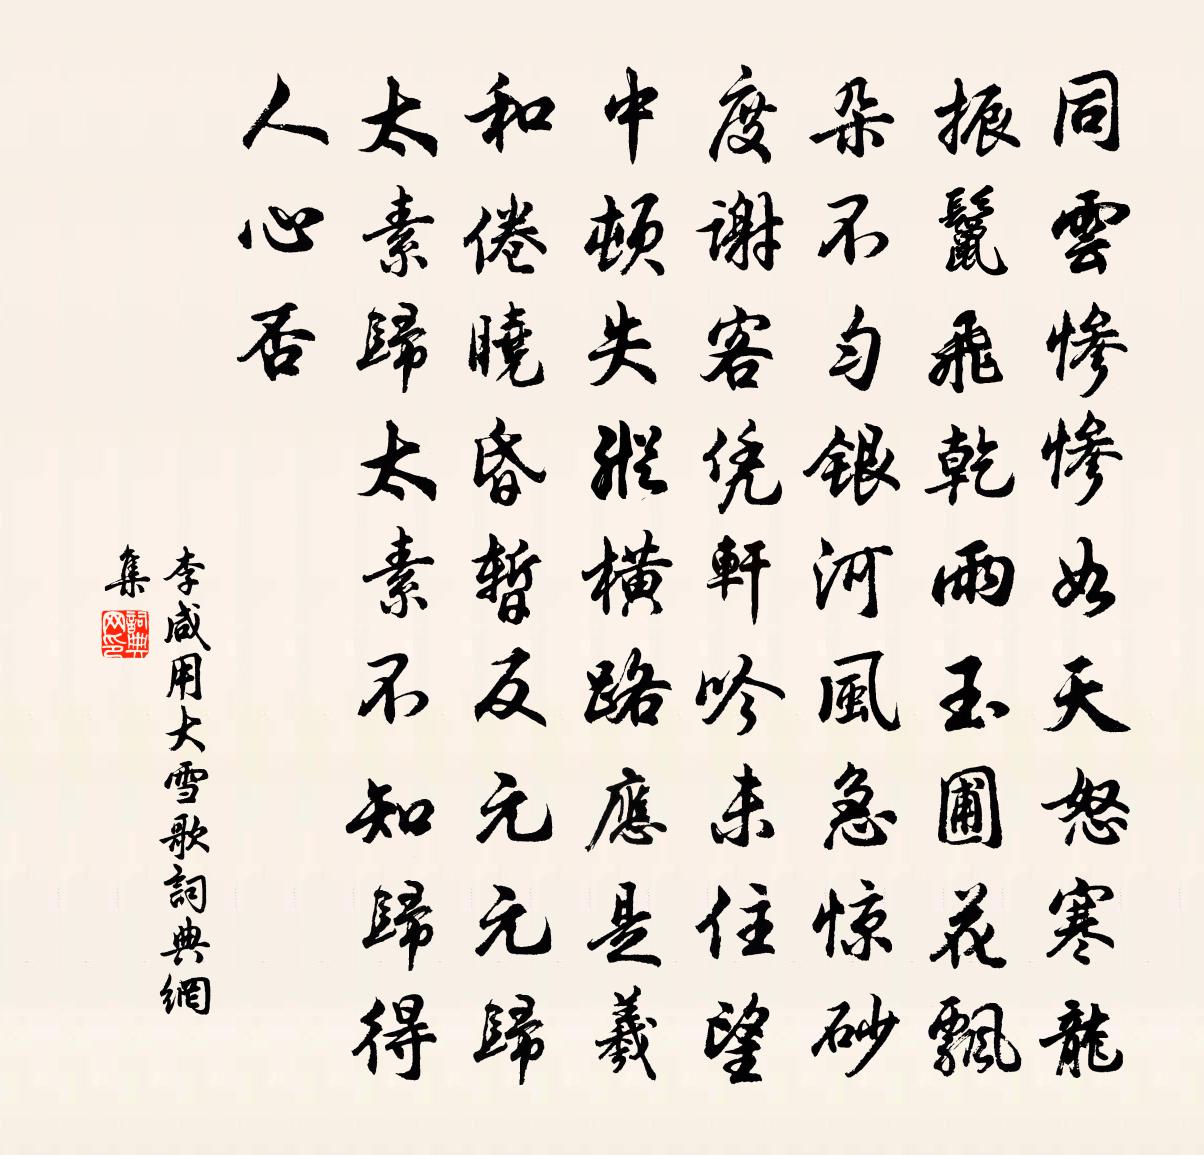 同雲慘慘如天怒寒龍
振鬣飛乾雨玉圃花飄
朵不勻銀河風急惊砂
度謝客凭軒吟未住望
中頓失縱橫路應是羲
和倦曉昏暫反元元歸
太素歸太素不知歸得
人心否
李咸用大雪歌詞典網
集
詞典
网印